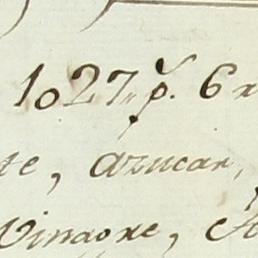 1027 p.s 6 r
te, azucar,
Vinagre, A